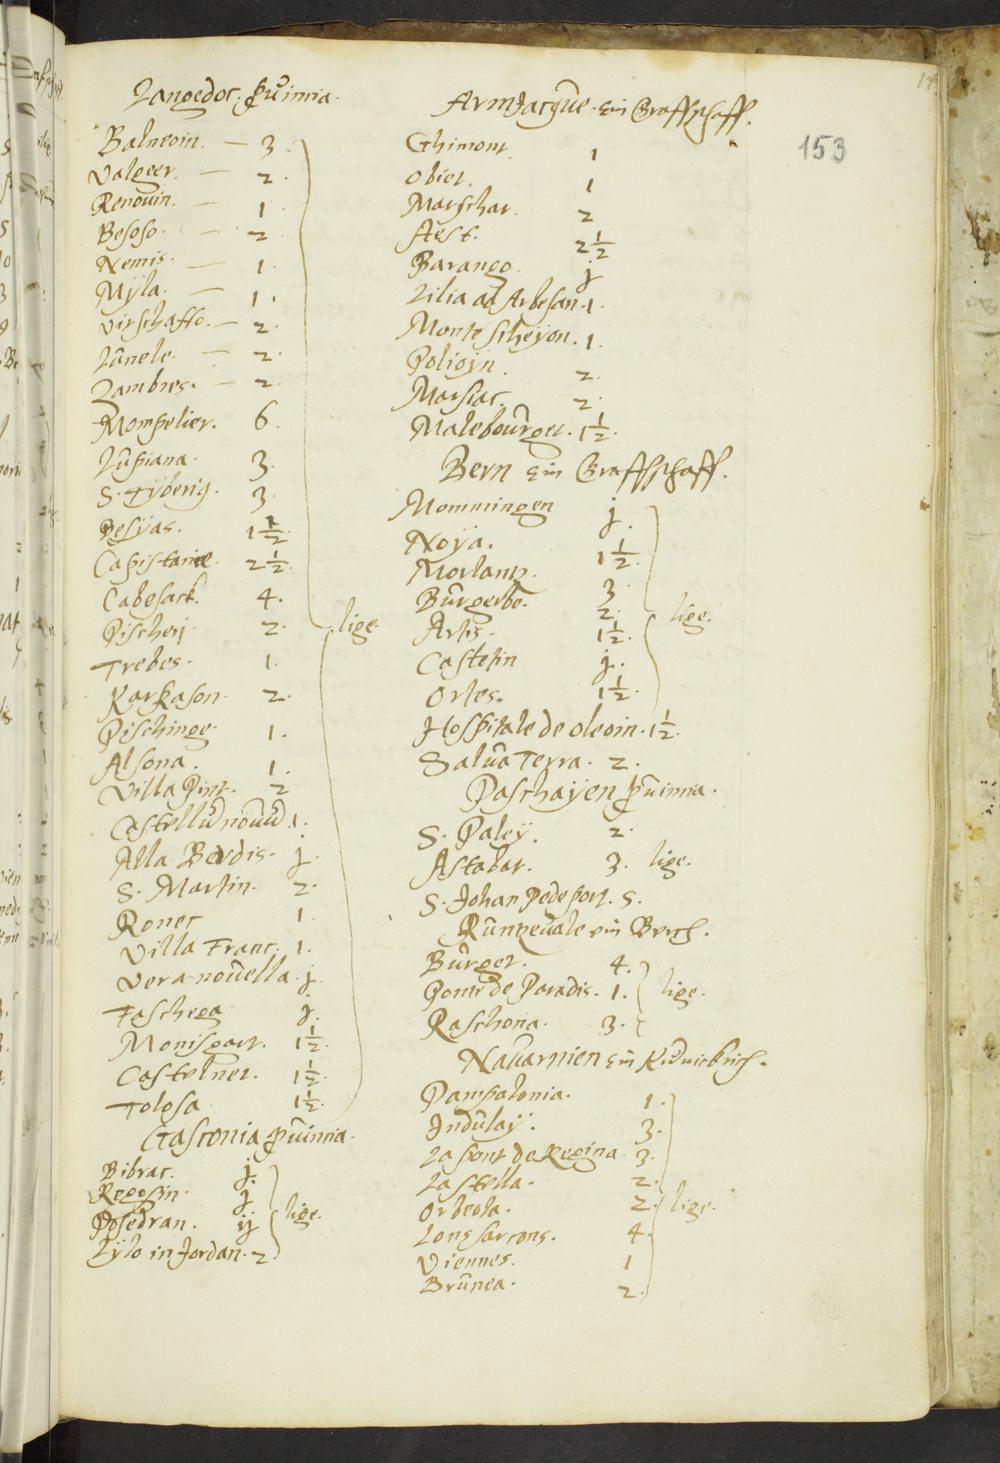 Langedoc. pruintia.
Balneoin. — 3.
Valgeer. — 2.
Renouin. — 1
Besoso. — 2
Nemis. — 1.
Mÿla. — 1.
Virschaffo. — 2.
Lunele. — 2.
Lambres. — 2.
Mompelier. 6.
Lupiana. 3.
S. Tÿberig. 3.
Pesÿas. 1½.
Capistanie. 2½.
Cabesack. 4.
Pischerj. 2.
lige.
Trebes. 1.
Karkason. 2.
Pischinge. 1.
Alsona. 1.
Villa Pint. 2
Castellū nouū. 1.
Alla Berdis. j.
S. Martin. 2.
Roner 1.
Villa Franc. 1.
Vera nouella. j.
Taschrga. j.
Monisgart. 1½.
Castelner. 1½.
Tolosa 1½.
Gasconia pruintia.
Bibrac. j.
Regosin. j
Posedran. ij
lige.
Lÿlo in Jordan. 2
Armiacque. ein Graffschaff.
153
Ghimont. 1
Obiet. 1
Marschar. 2
Aest. 2½
Barango. j
Lilia ad Arbesan. 1.
Monte scheÿon. 1.
Poligÿn. 2.
Marsiac. 2.
Malebourget. 1½.
Bern ein Graffschaff.
Mommingen j.
Noÿa. 1½.
Morlantz. 3.
Burgerbe. 2.
lige.
Artis. 1½.
Castetin j.
Ortes. 1½.
Hospitale de oleoin. 1½.
Salua Terra. 2.
Paschaÿen pruintia.
S. Paleÿ. 2.
Astabat. 3. lige.
S. Johan Pedeport. 5.
Runzeuale ein Berch.
Burget. 4.
Ponte de Paradis. 1. lige.
Raschona. 3.
Nauarnien ein Künickrich.
Pampalonia. 1.
Indulaÿ. 3.
La pont de Regina. 3.
La stella. 2.
Orbeola. 2. lige.
Longsarcons. 4.
Viennes. 1
Brunea. 2.